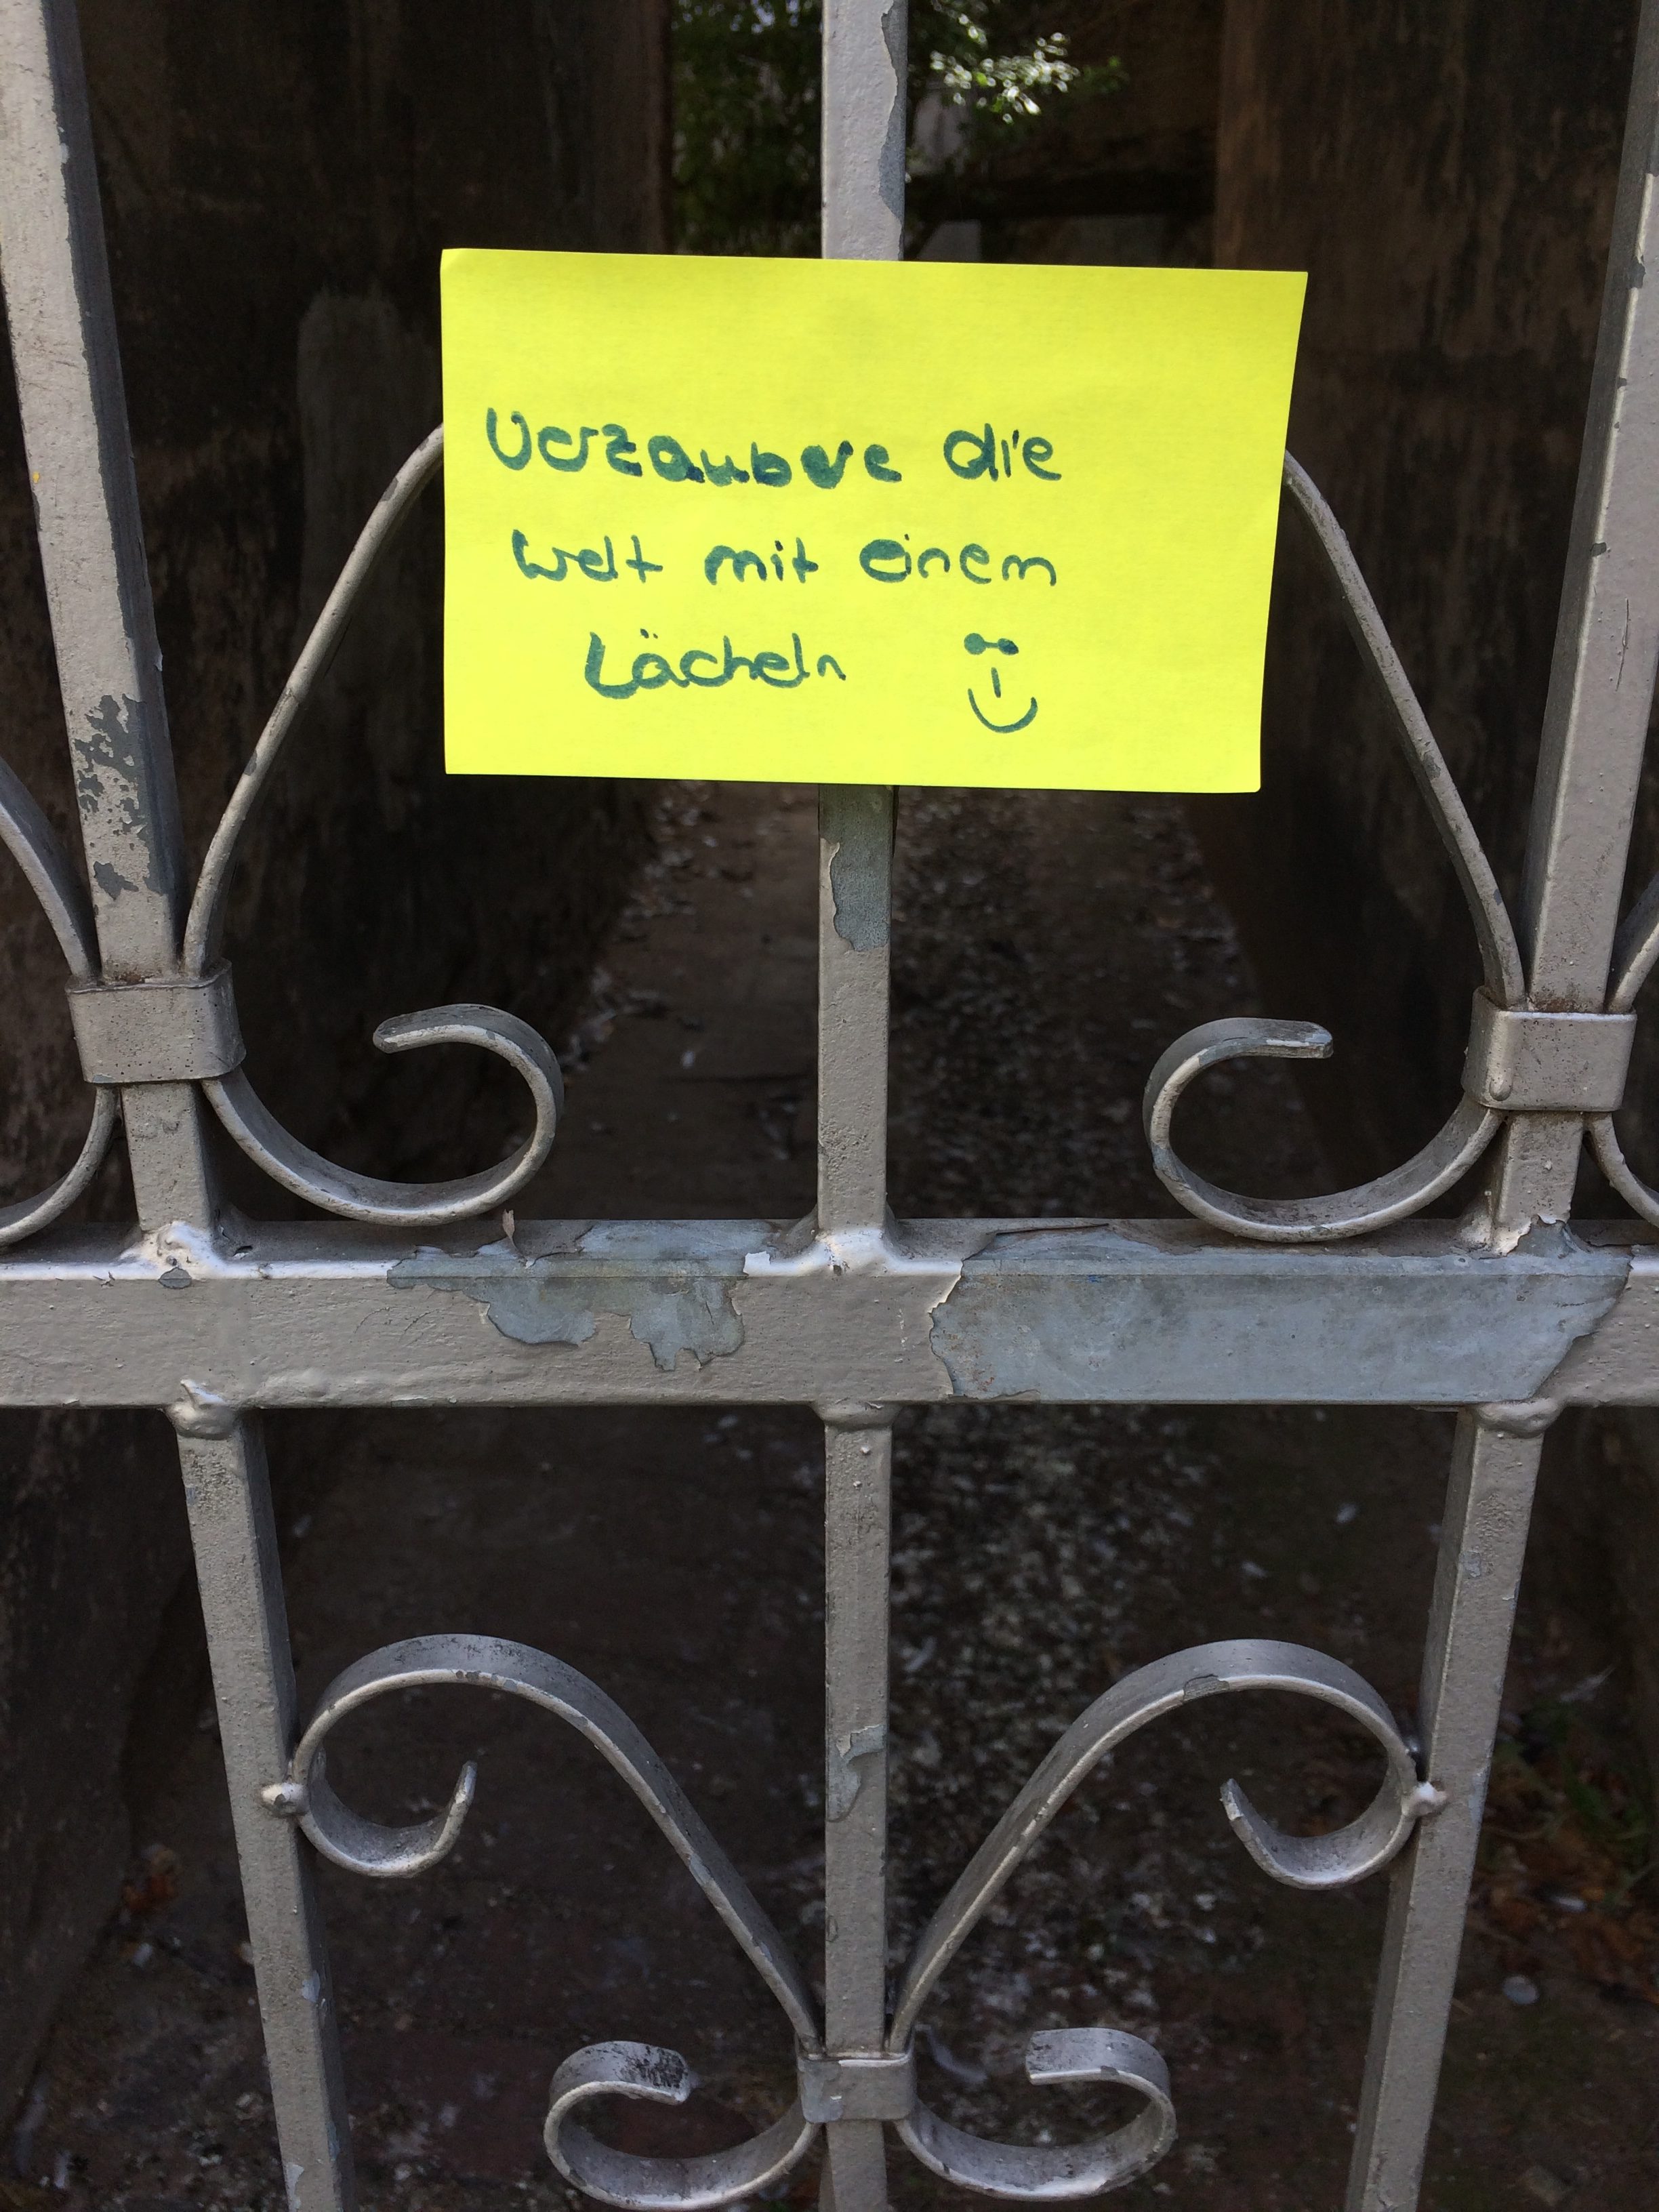 Verzaubere die
Welt mit einem
Lächeln